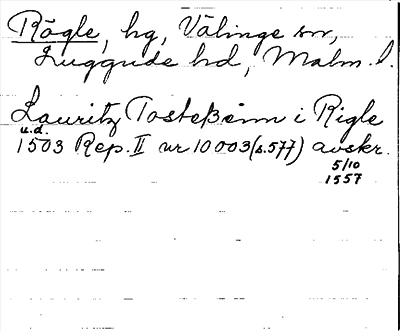 Rögle, hg, Välinge sn,
Luggude hd, Malm. l.
Lauritz Tosteßönn i Rigle
u.d.
1503 Rep. II nr 10003 (s. 577) avskr.
5/10
1557